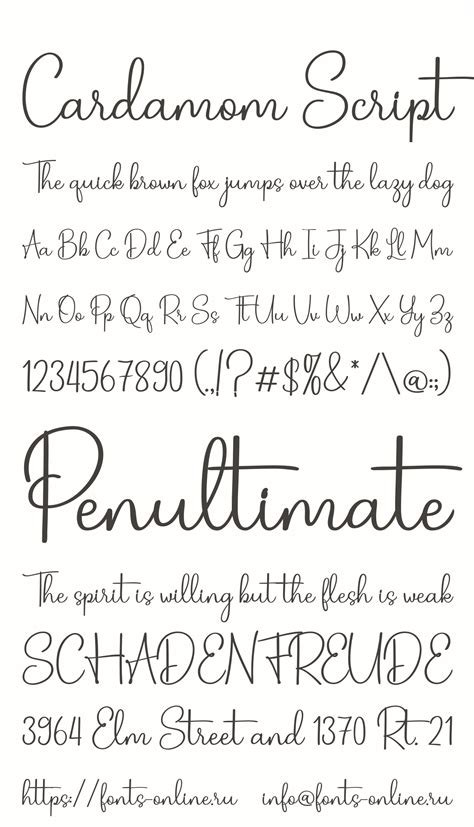 Cardamom Script
The quick brown fox jumps over the lazy dog
Aa Bb Cc Dd Ee Ff Gg Hh Ii Jj Kk Ll Mm
Nn Oo Pp Qq Rr Ss Tt Uu Vv Ww Xx Yy Zz
1234567890 (.,|?#$%&*/\@:;)
Penultimate
The spirit is willing but the flesh is weak
SCHADENFREUDE
3964 Elm Street and 1370 Rt. 21
https://fonts-online.ru info@fonts-online.ru